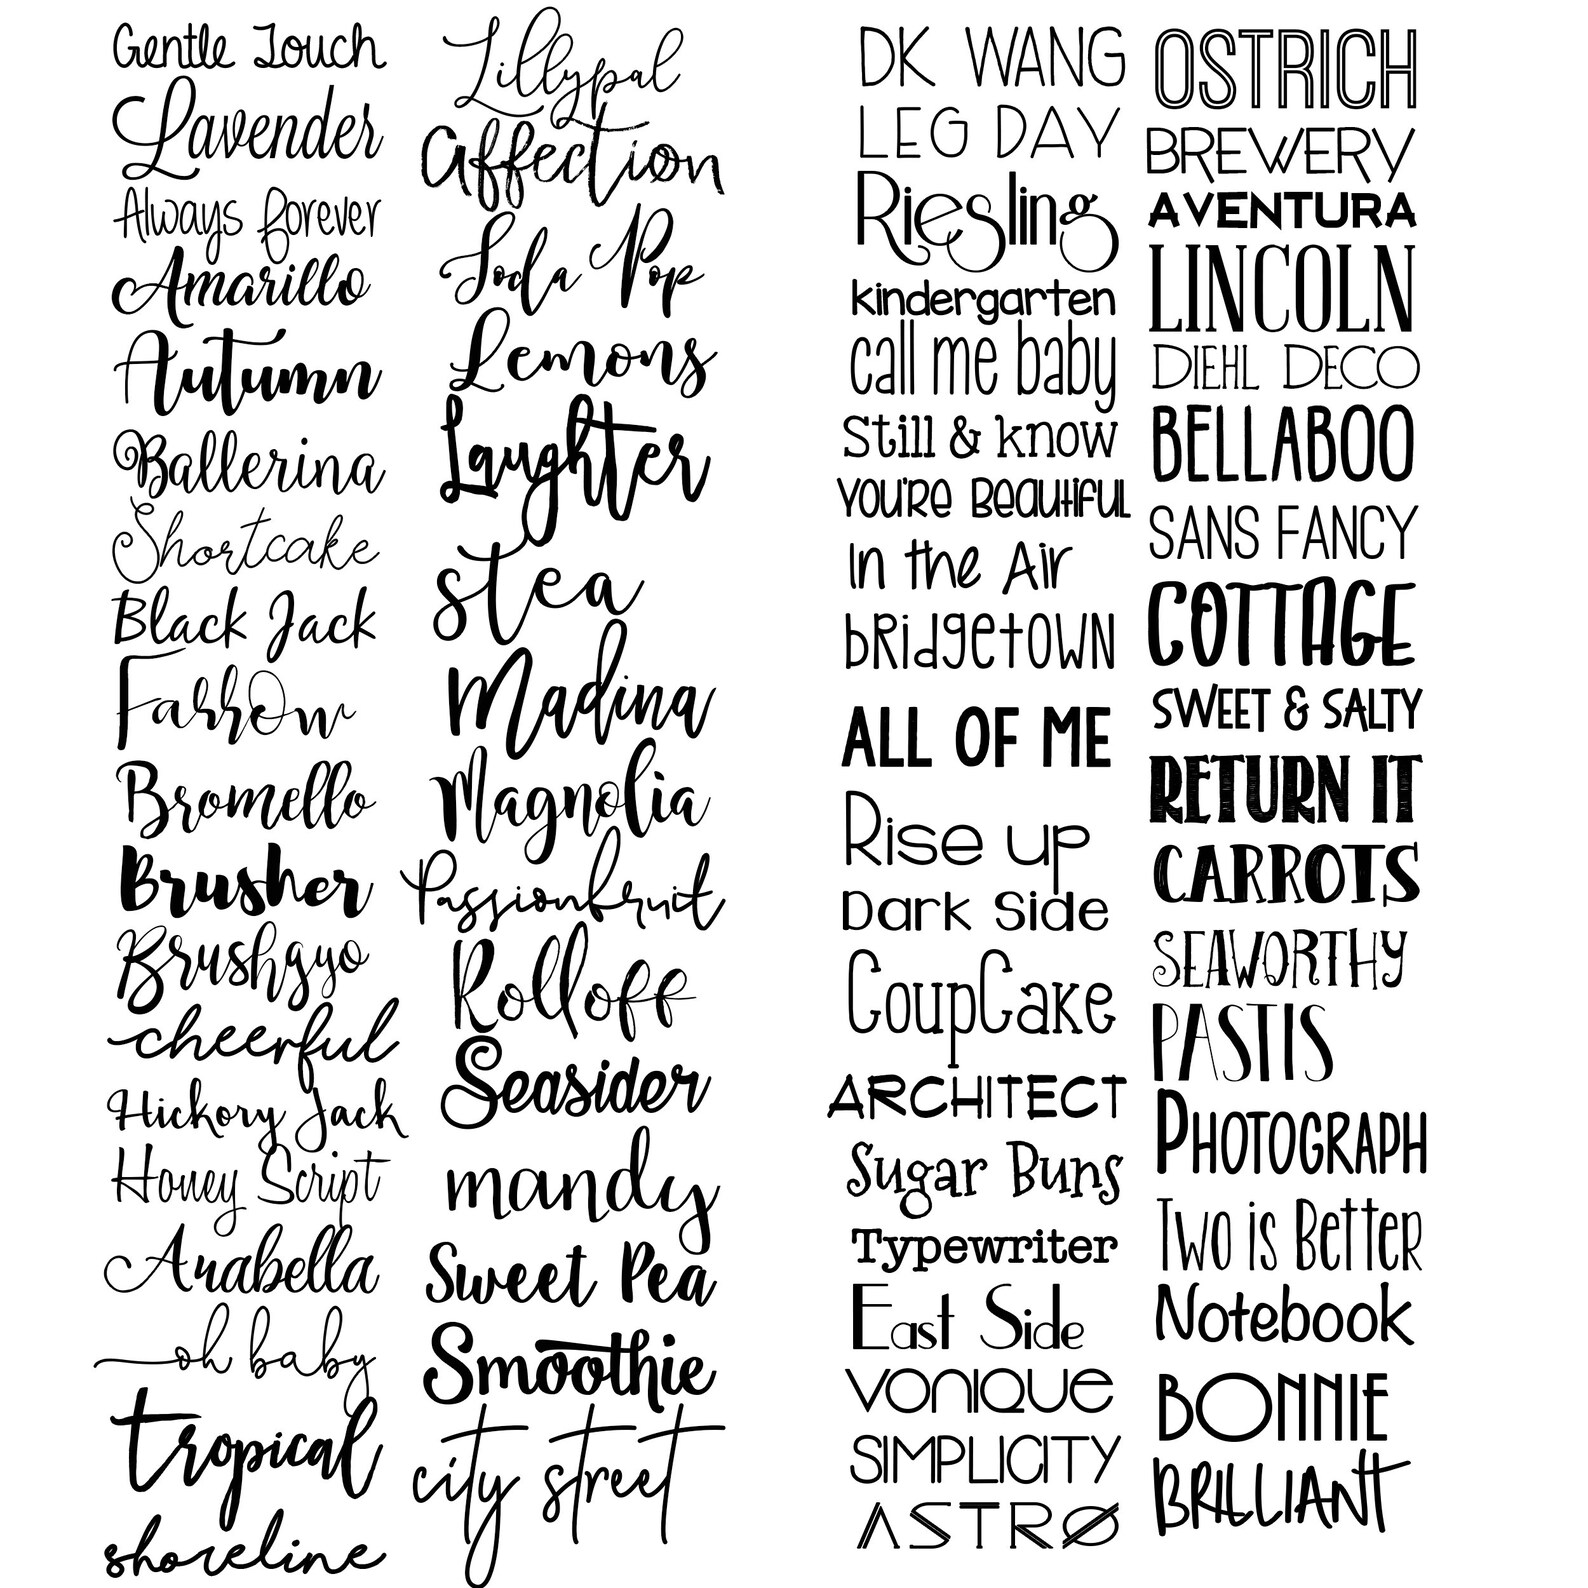 Gentle Touch
Lavender
Always forever
Amarillo
Autumn
Ballerina
Shortcake
Black Jack
Farrow
Bromello
Brusher
Brushgyo
cheerful
Hickory Jack
Honey Script
Arabella
oh baby
tropical
shoreline
Lillypal
affection
Soda Pop
Lemons
Laughter
stea
Madina
Magnolia
Passionfruit
Rolloff
Seasider
mandy
Sweet Pea
Smoothie
city street
DK WANG
LEG DAY
Riesling
kindergarten
call me baby
Still & know
YOU'RE BEAUTIFUL
In the Air
bRidgetOWN
ALL OF ME
Rise up
Dark Side
CoupCake
ARCHITECT
Sugar Buns
Typewriter
East Side
VONIQUE
SIMPLICITY
ASTRØ
OSTRICH
BREWERY
AVENTURA
LINCOLN
DIEHL DECO
BELLABOO
SANS FANCY
COTTAGE
SWEET & SALTY
RETURN IT
CARROTS
SEAWORTHY
PASTIS
PHOTOGRAPH
TWO is BETTER
Notebook
BONNIE
BRILLIANT